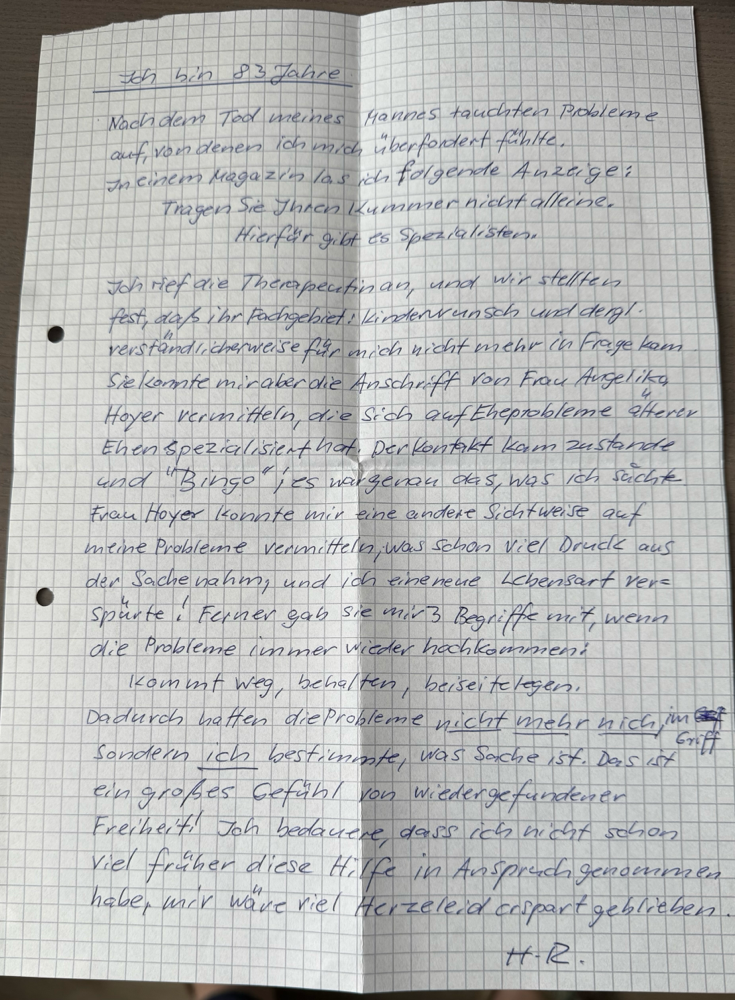 Ich bin 83 Jahre
Nach dem Tod meines Mannes tauchten Probleme
auf, von denen ich mich überfordert fühlte.
In einem Magazin las ich folgende Anzeige:
Tragen Sie Ihren Kummer nicht alleine.
Hierfür gibt es Spezialisten.
Ich rief die Therapeutin an, und wir stellten
fest, daß ihr Fachgebiet: Kinderwunsch und dergl.
verständlicherweise für mich nicht mehr in Frage kam
Sie konnte mir aber die Anschrift von Frau Angelika
Hoyer vermitteln, die sich auf Eheprobleme älterer
Ehen spezialisiert hat. Der Kontakt kam zustande
und "Bingo"! es war genau das, was ich suchte
Frau Hoyer konnte mir eine andere Sichtweise auf
meine Probleme vermitteln, was schon viel Druck aus
der Sache nahm, und ich eine neue Lebensart ver=
spürte! Ferner gab sie mir 3 Begriffe mit, wenn
die Probleme immer wieder hochkommen:
Kommt weg, behalten, beiseitelegen.
Dadurch hatten die Probleme nicht mehr mich, im
Griff
sondern ich bestimmte, was Sache ist. Das ist
ein großes Gefühl von wiedergefundener
Freiheit! Ich bedauere, dass ich nicht schon
viel früher diese Hilfe in Anspruch genommen
habe, mir wäre viel Herzeleid erspart geblieben.
H.R.